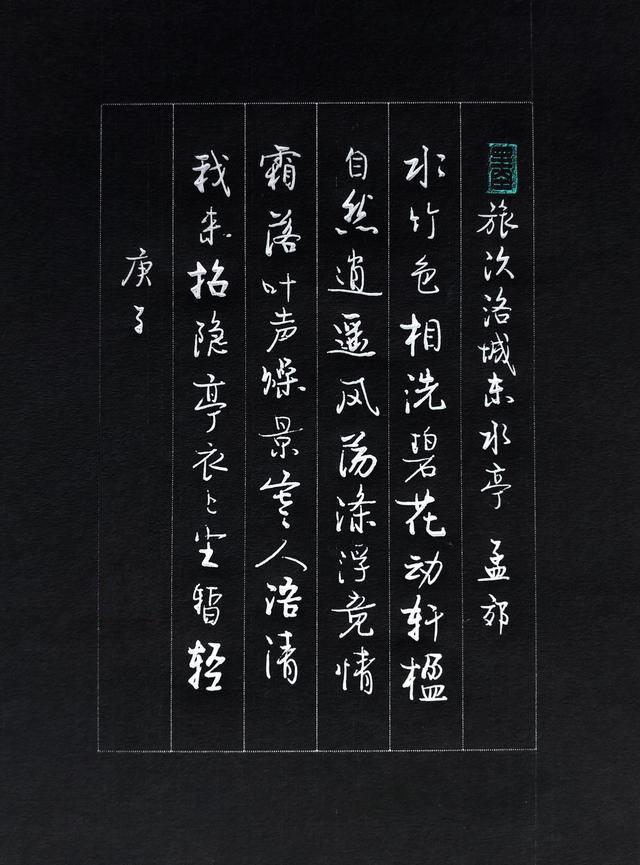 旅次洛城东水亭 孟郊
水竹色相洗碧花动轩楹
自然逍遥风荡涤浮竟情
霜落叶声燥景寒人语清
我来招隐亭衣上尘暂轻
庚子